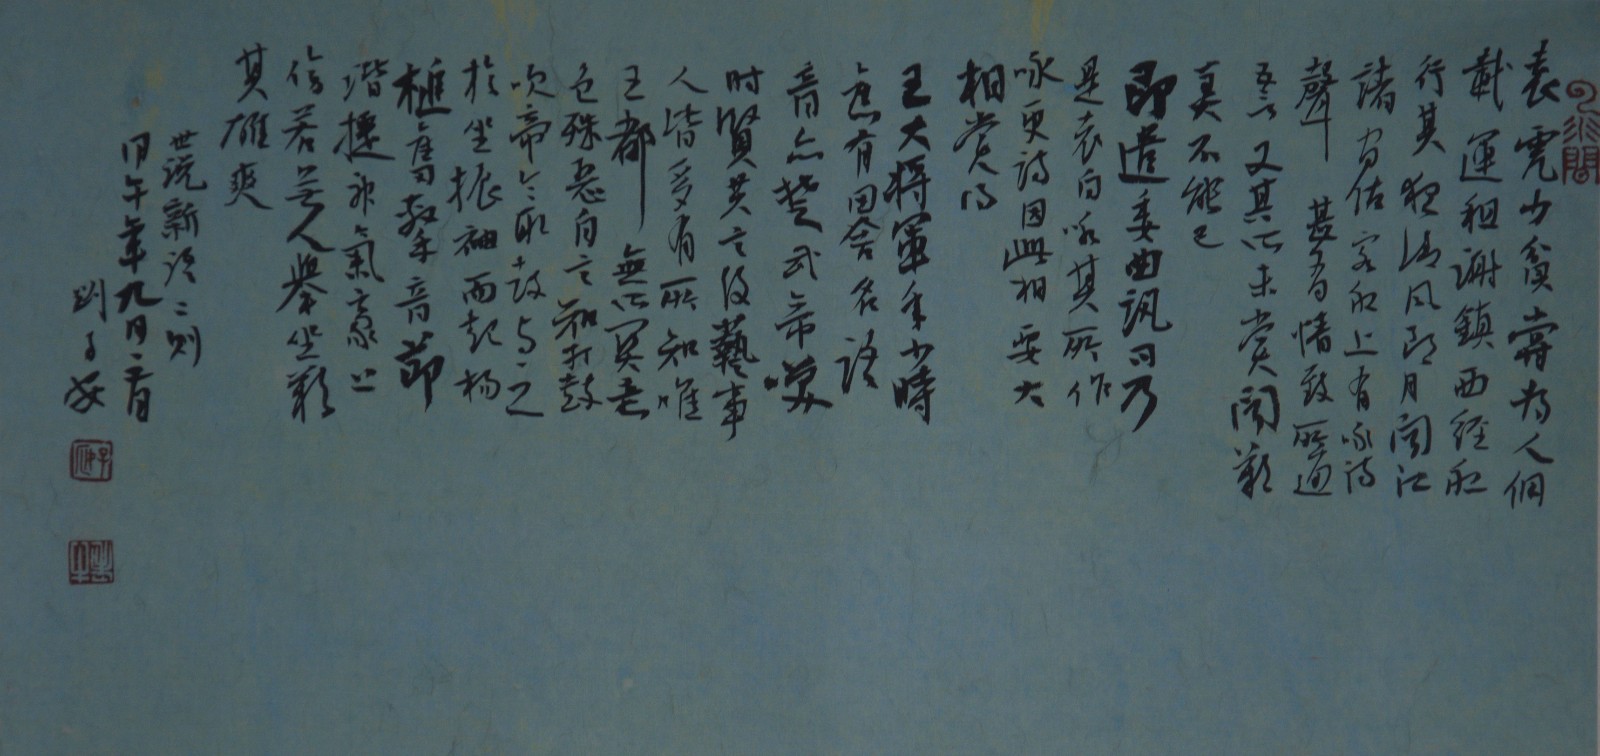 袁虎少貧嘗為人傭
載運租謝鎮西經船
行其夜清風朗月聞江
諸間估客船上有詠詩
聲甚有情致所遍
五言又其所未嘗聞歎
美不能已
即遣委曲訊問乃
是袁自詠其所作
詠史詩因此相要大
相賞得
王大將軍年少時
舊有田舍名語
音亦楚武帝喚
時賢共言伎藝事
人皆多有所知唯
王都無所關意
色殊惡自言知打鼓
吹帝令取鼓與之
於坐振袖而起揚
槌奮擊音節
諧捷神氣豪上
傍若無人舉坐歎
其雄爽
世说新语二则
甲午年九月二百
劉子安